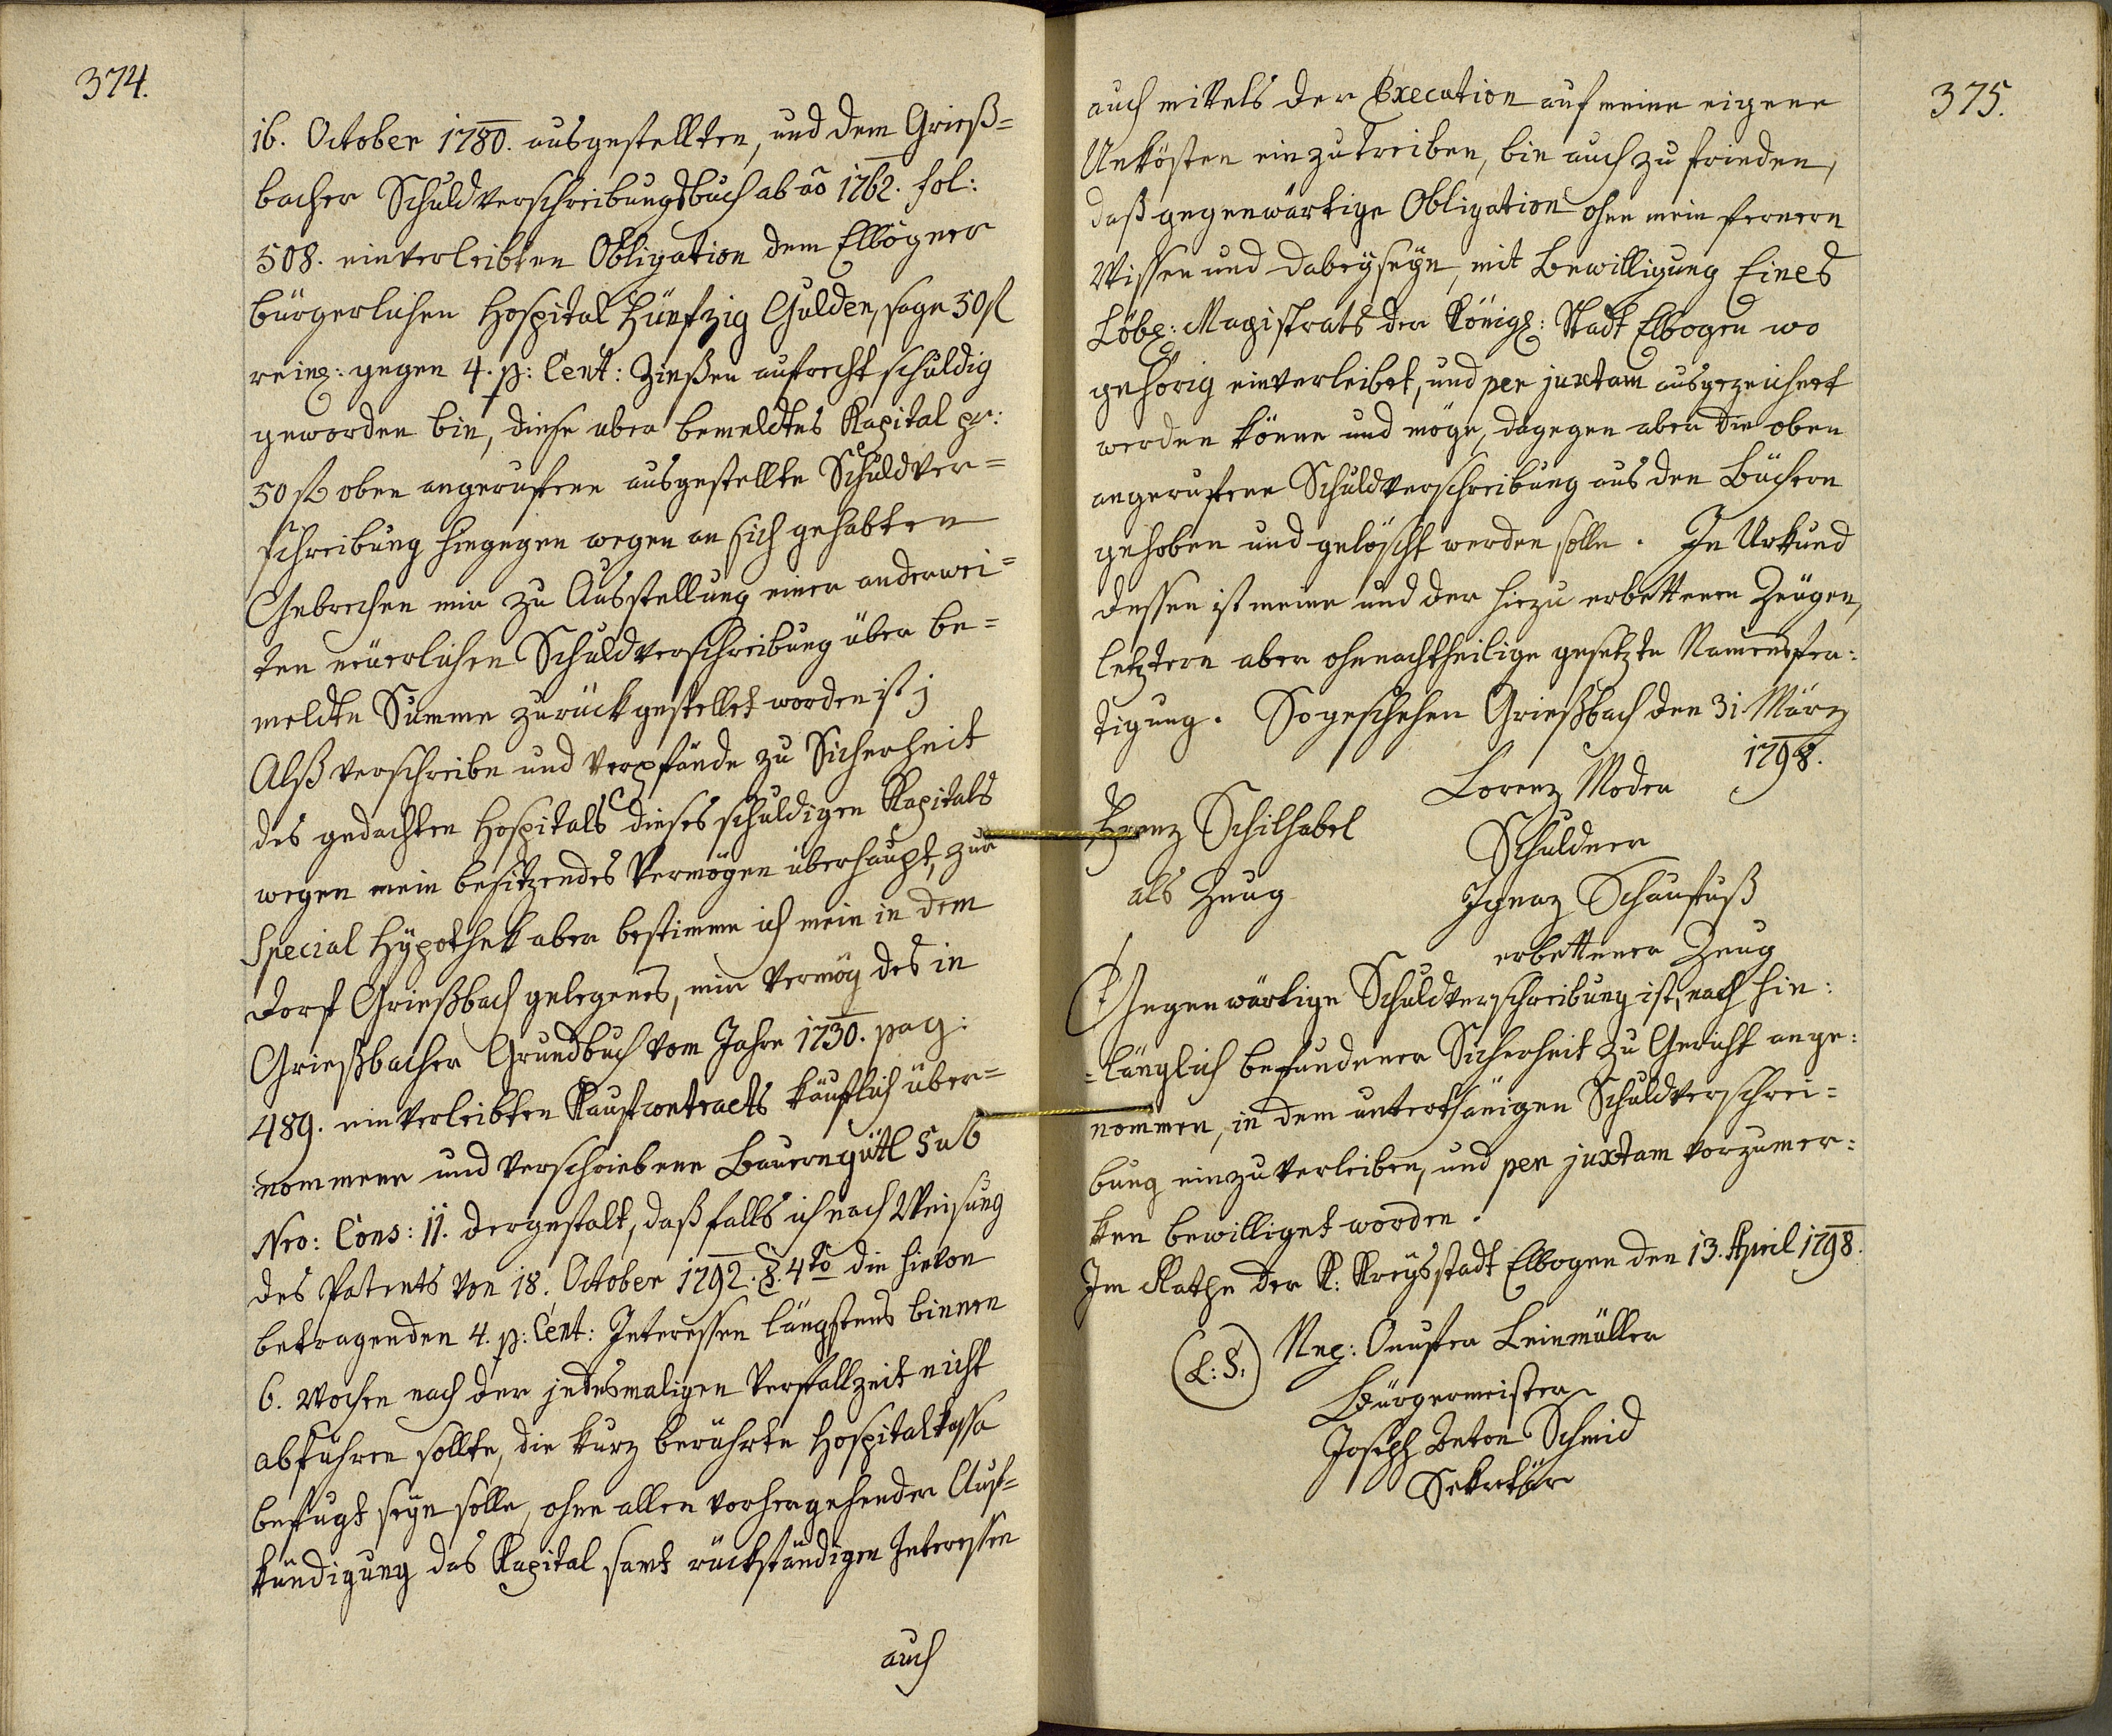 374.
16. October 1780. ausgestellten, und dem Grieß=
bacher Schuldverschreibungsbuch ab ao 1762. fol:
508. einverleibten Obligation dem Elbogner
bürgerlichen Hospital Fünfzig Gulden, sage 50 fl
reinl: gegen 4. p: Cent: Zinßen aufrecht schuldig
geworden bin, diese aber bemeldtes Kapital pr:
50 fl oben angerufene ausgestellte Schuldver=
schreibung hingegen wegen an sich gehabten
Gebrechen mir zu Ausstellung einer anderwei=
ten neuerlichen Schuldverschreibung über be=
meldte Summe zurückgestellet worden ist;
Alß verschreibe und verpfände zu Sicherheit
des gedachten Hospitals dieses schuldigen Kapitals
wegen mein besitzendes Vermögen überhaupt, zur
Special Hypothek aber bestimme ich mein in dem
Dorf Grießbach gelegenes, mir vermög des in
Grießbacher Grundbuch vom Jahre 1730. pag:
489. einverleibten Kaufcontracts käuflich über=
nommene und verschriebene Bauerngütl Sub
Nro: Cons: 11. dergestalt, daß falls ich nach Weisung
des Patents von 18. October 1792. §. 4to die hievon
betragenden 4. p: Cent: Interessen längstens binnen
6. Wochen nach der jedesmaligen Verfallzeit nicht
abführen sollte, die kurz berührte Hospitalkassa
befugt seyn solle, ohne allen vorhergehender Auf=
kündigung das Kapital samt rückständigen Interessen
auch
375.
auch mittels der Execution auf meine eigene
Unkösten einzutreiben, bin auch zu frieden,
daß gegenwärtige Obligation ohne mein fernern
Wissen und dabeyseyn, mit Bewilligung Eines
Löbl: Magistrats der Königl: Stadt Elbogen wo
gehörig einverleibet, und per juxtam ausgezeichnet
werden könne und möge, dagegen aber die oben
angerufene Schuldverschreibung aus den Büchern
gehoben und gelöscht werden solle. In Urkund
dessen ist meine und der hiezu erbettenen Zeugen,
letztern aber ohnenachtheilige gesetzte Namensfer:
tigung. So geschehen Grießbach den 31 März
1798.
Lorenz Moder
Schuldner
Franz Schilhabel
als Zeug
Ignaz Schaufuß
erbettener Zeug
Gegenwärtige Schuldverschreibung ist, nach hin:
=länglich befundener Sicherheit zu Gericht ange:
nommen, in dem unterthänigen Schuldverschrei=
bung einzuverleiben, und per juxtam vorzumer:
ken bewilliget worden.
Im Rathe der K: Kreysstadt Elbogen den 13. April 1798.
(L: S.)
Leinmüller
Bürgermeister
Joseph Anton Schmid
Sekretär